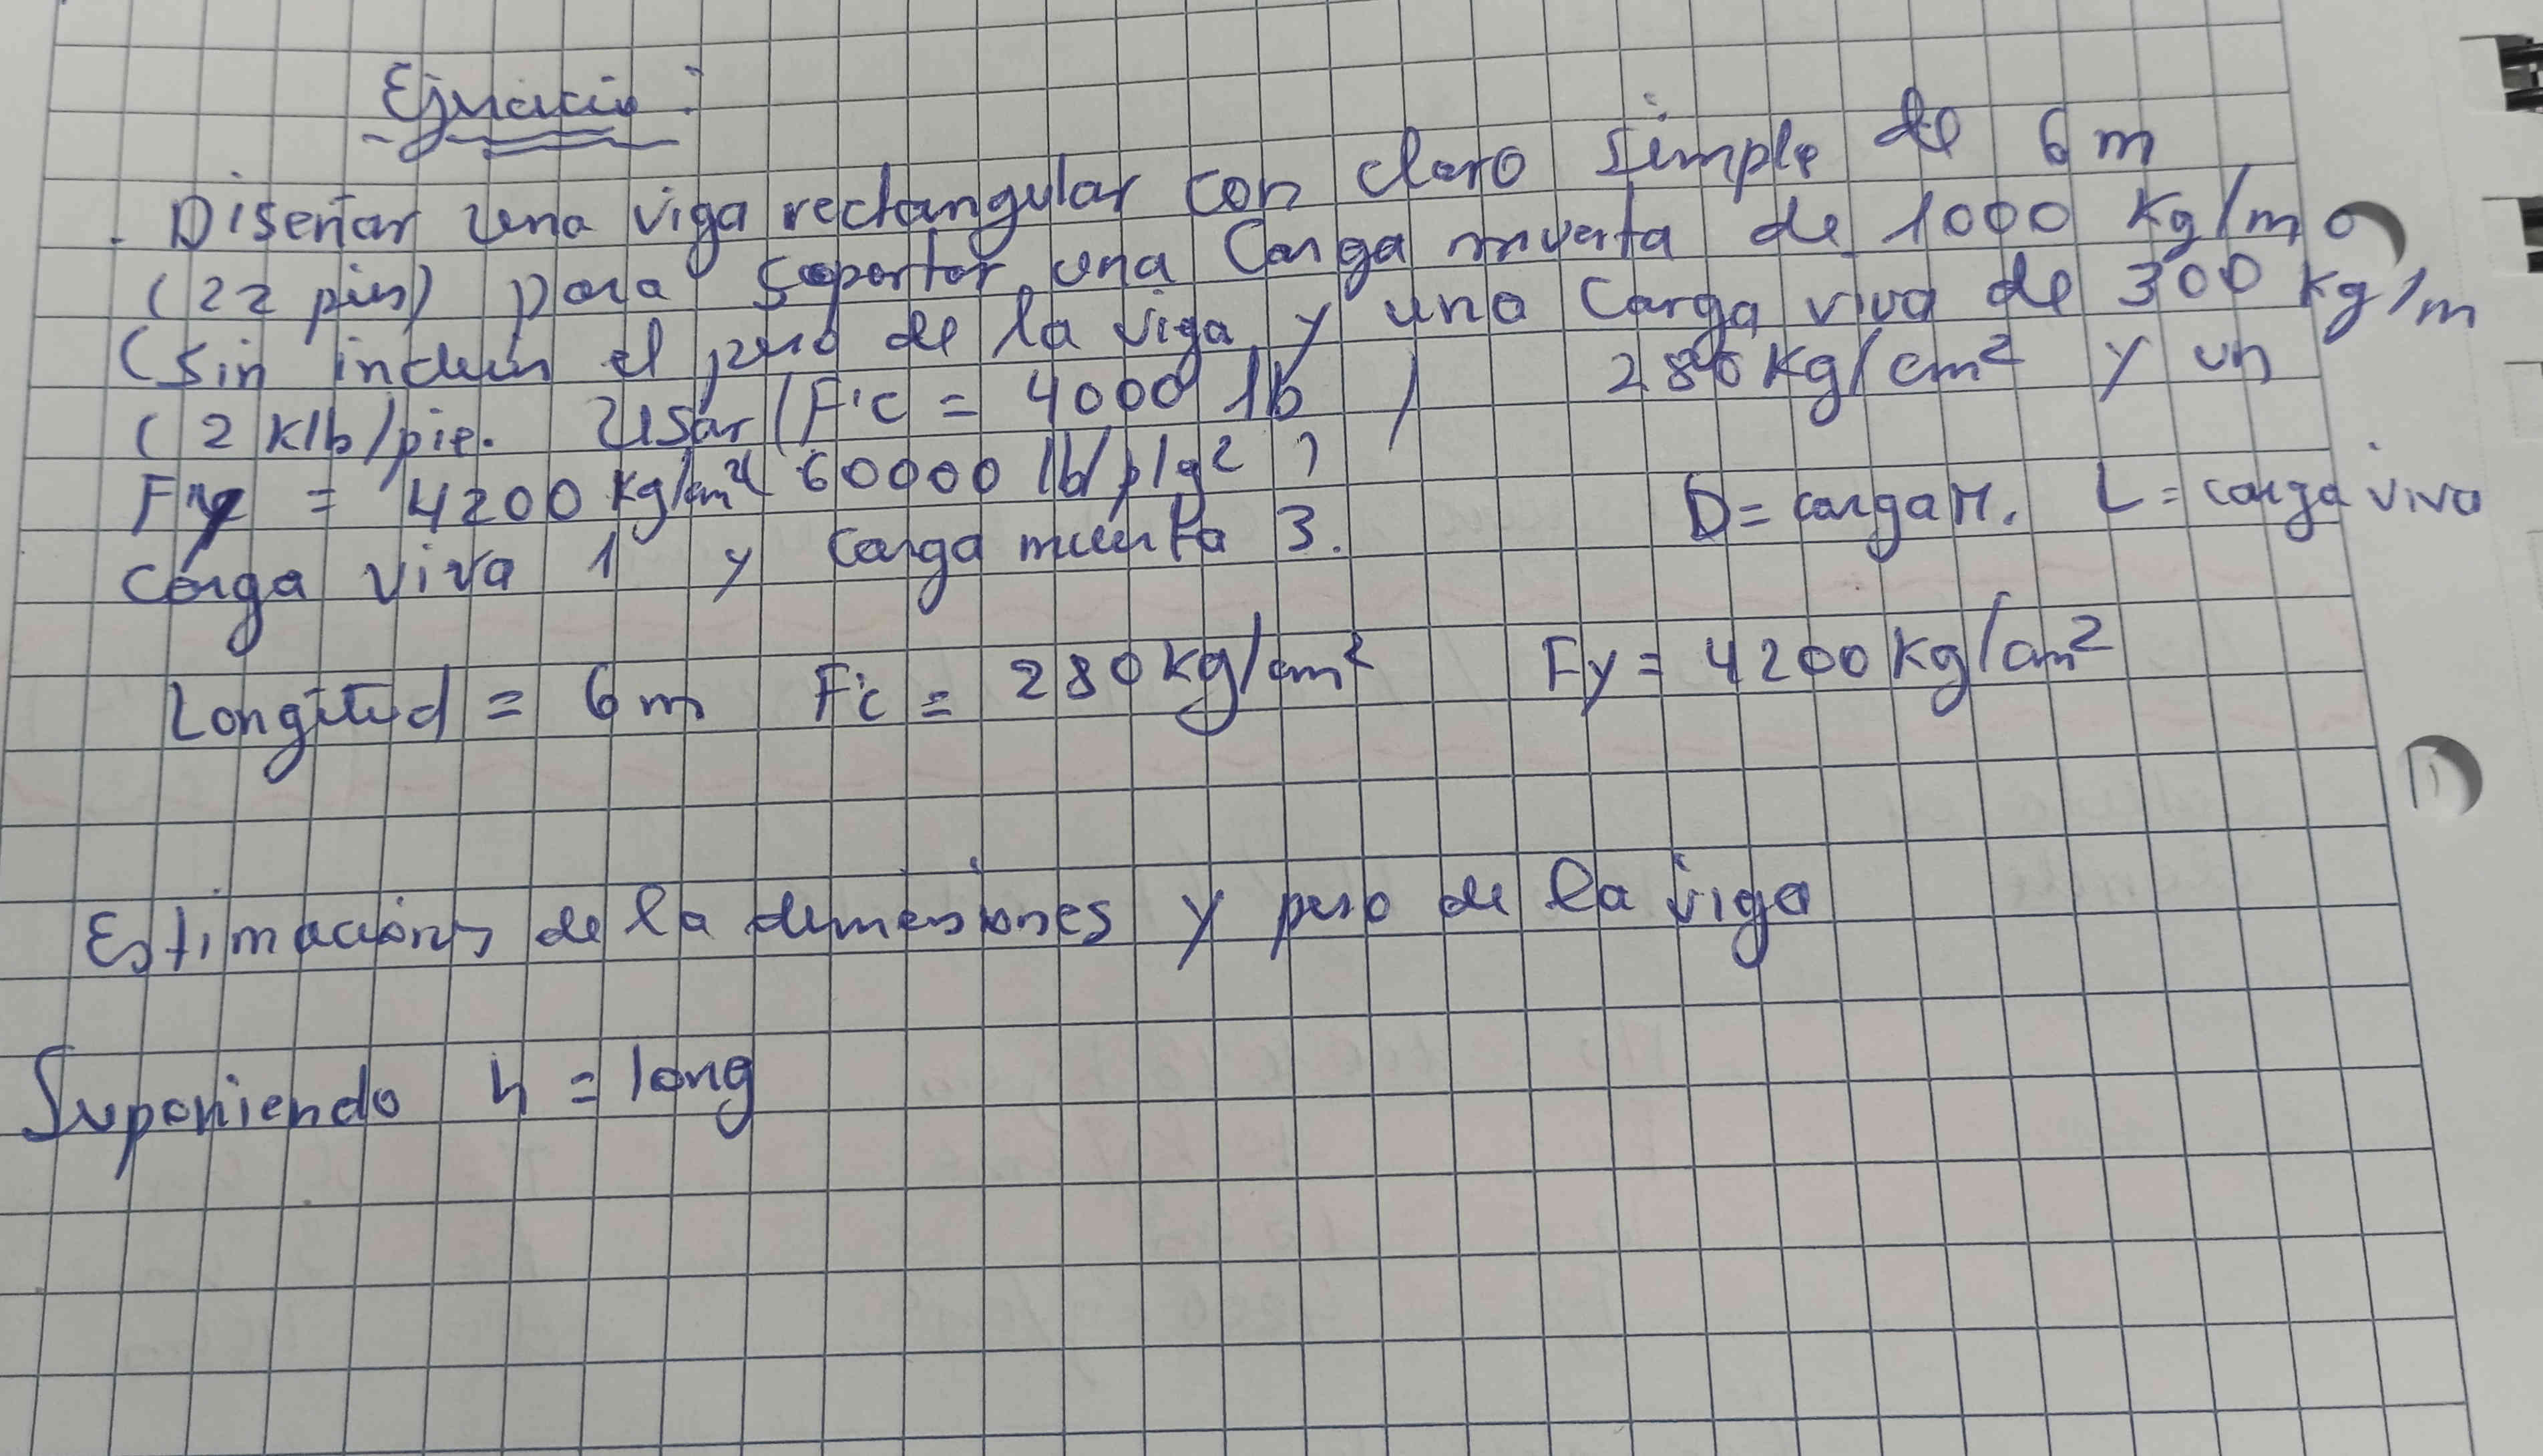 Ejercicio :
. Diseñar una viga rectangular con claro simple de 6 m
(22 pies) para soportar una Carga muerta de 1000 Kg/m
(sin incluir el peso de la viga y una Carga viva de 300 Kg/m
( 2 Klb/pie. Usar (F'c = 4000 lb / 280 Kg/cm² y un
Fy = 4200 Kg/cm² 60000 lb/plg² )
Carga viva 1 y Carga muerta 3. D = carga M. L = carga viva
Longitud = 6 m F'c = 280 kg/cm² Fy = 4200 Kg/cm²
Estimacions de la dimensiones y peso de la viga
Suponiendo h = long